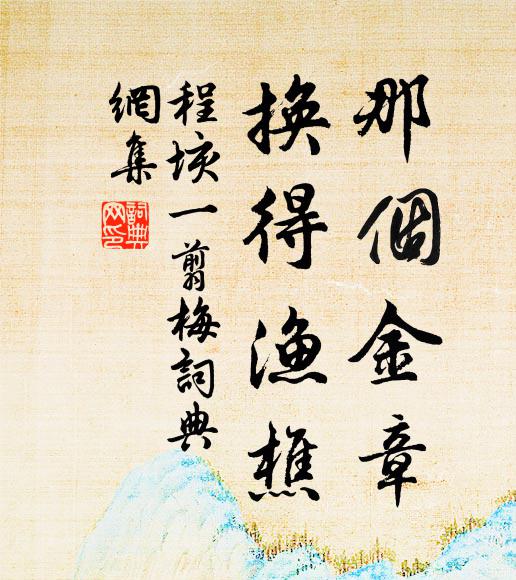 那個金章
換得漁樵
程垓一剪梅詞典
網集
詞典
网印